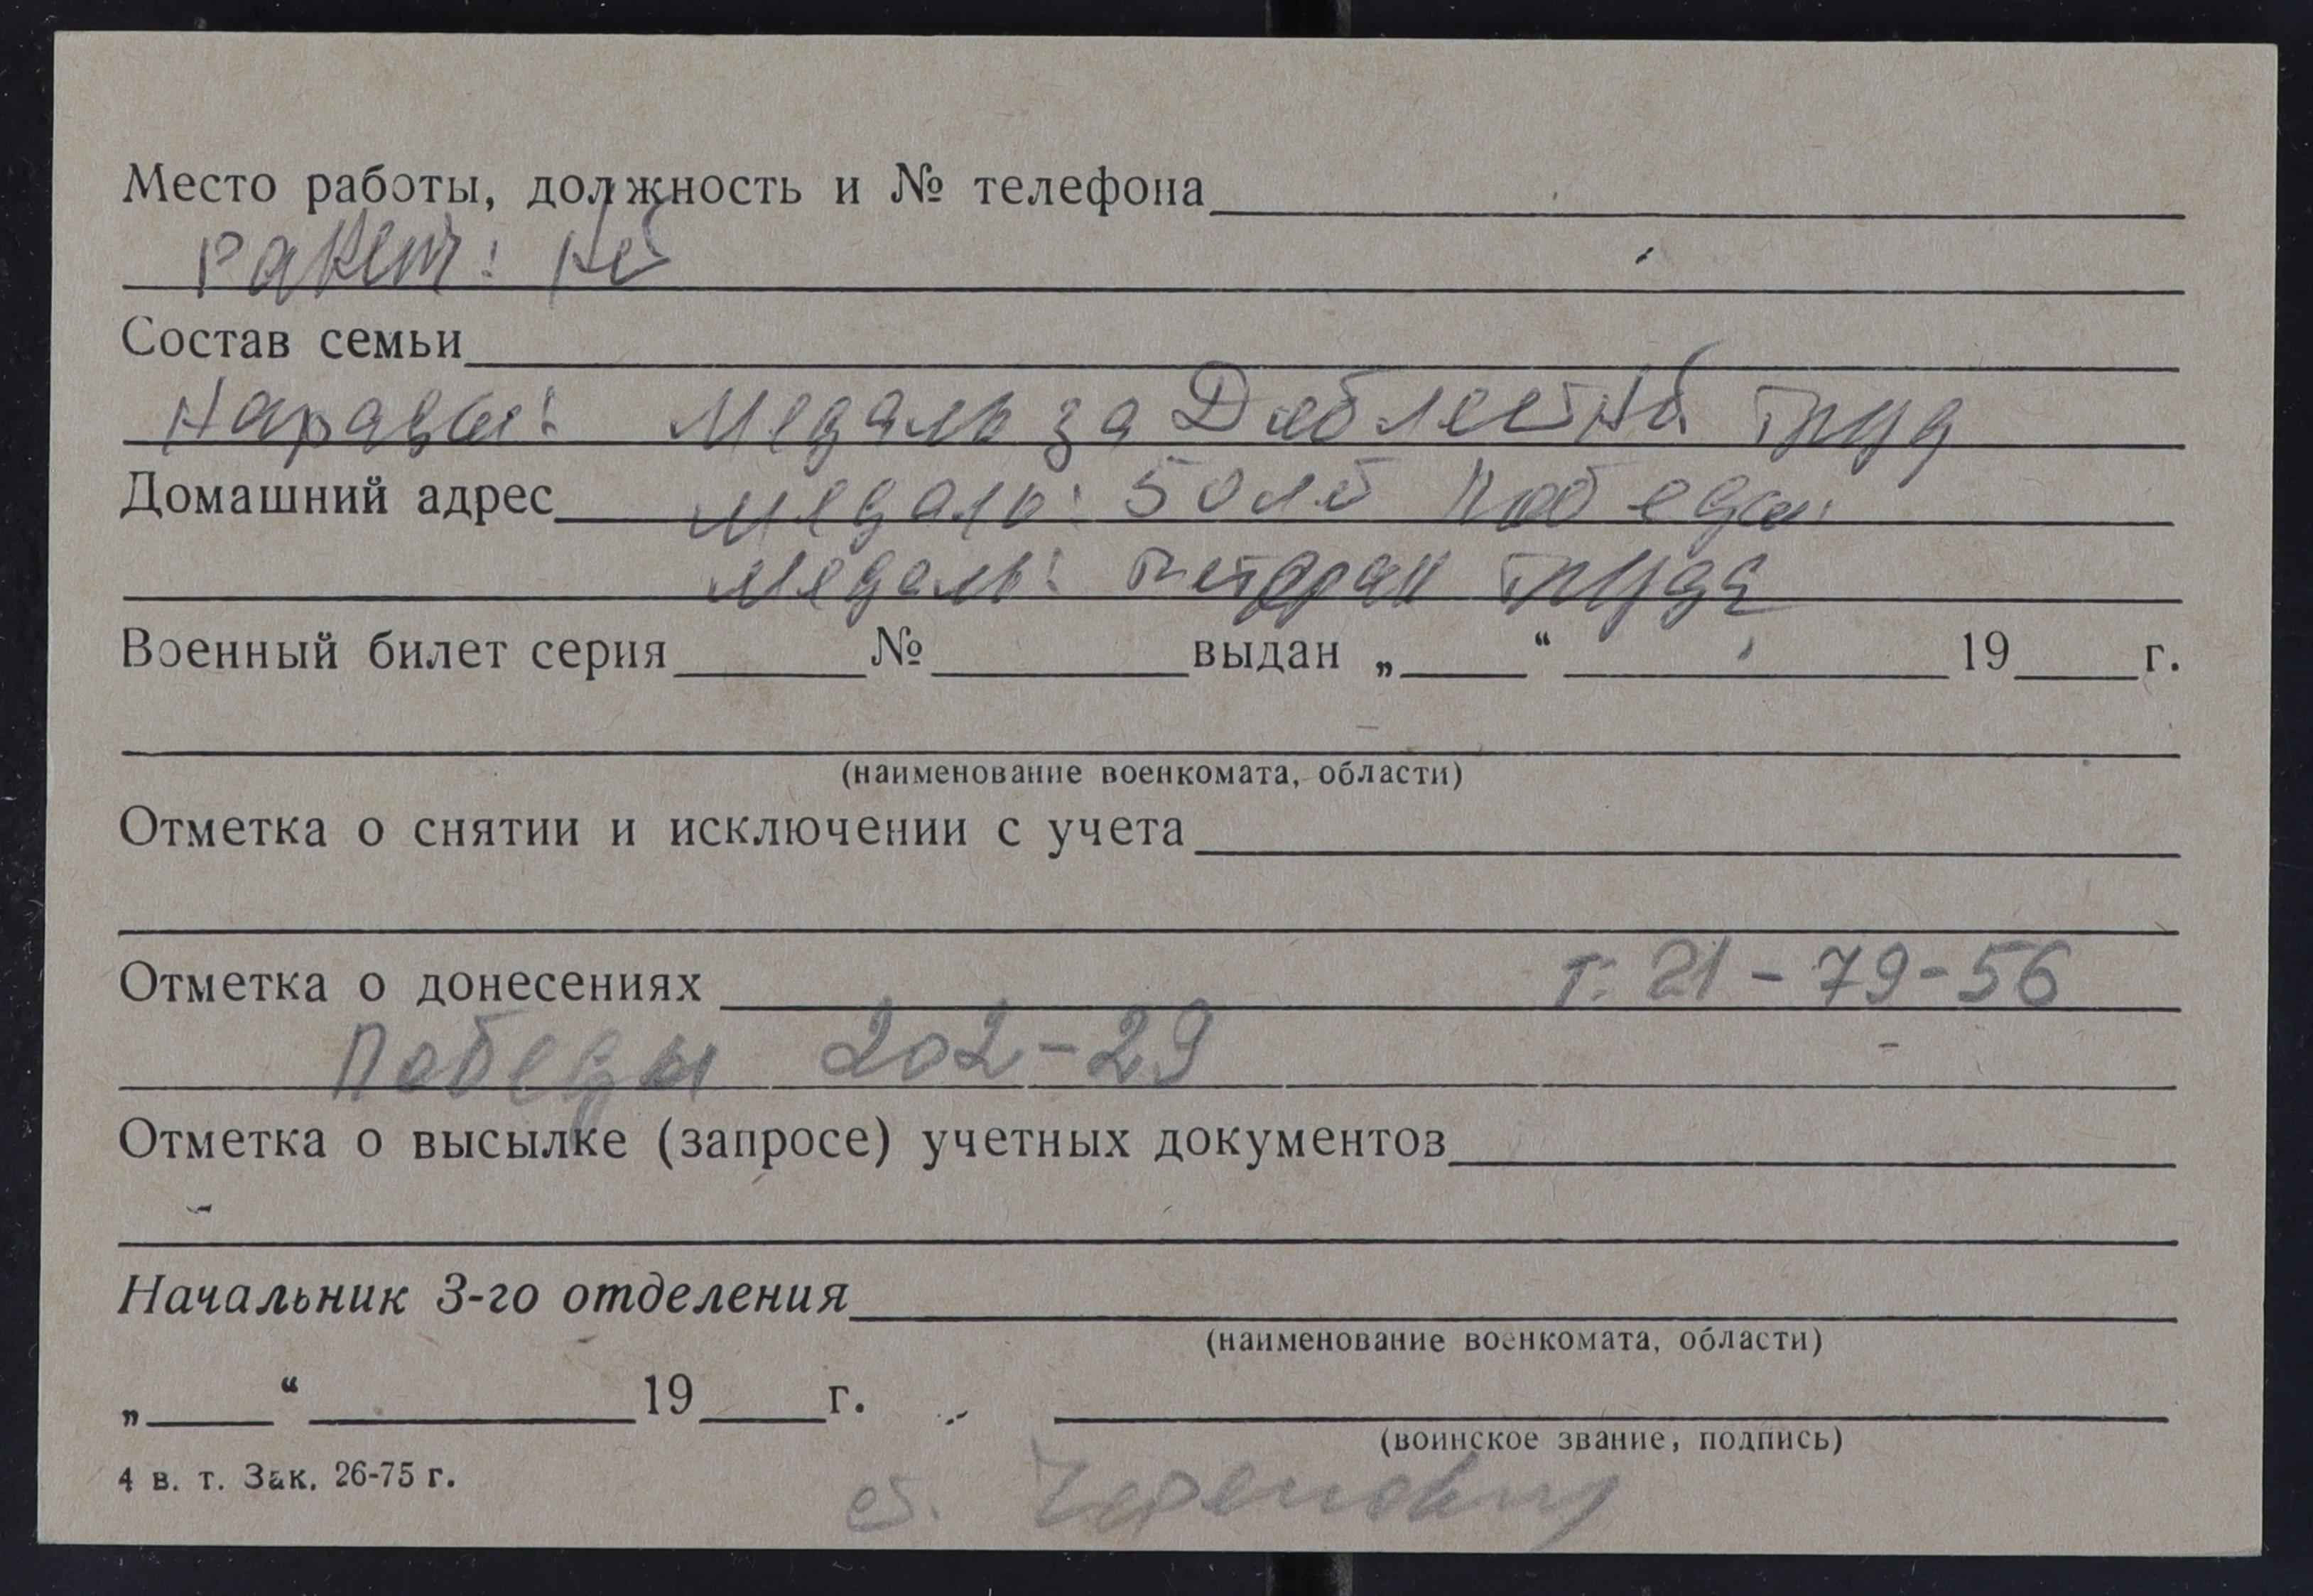 Место работы, должность и № телефона
Состав семьи
Медаль за Доблестный труд
Домашний адрес Медаль: 50 лет Победы
Медаль: ветеран труда
Военный билет серия № выдан „ “ 19 г.
(наименование военкомата, области)
Отметка о снятии и исключении с учета
Отметка о донесениях т. 21-79-56
Победы 202-29
Отметка о высылке (запросе) учетных документов
Начальник 3-го отделения
(наименование военкомата, области)
„ “ 19 г.
(воинское звание, подпись)
4 в. т. Зак. 26-75 г.